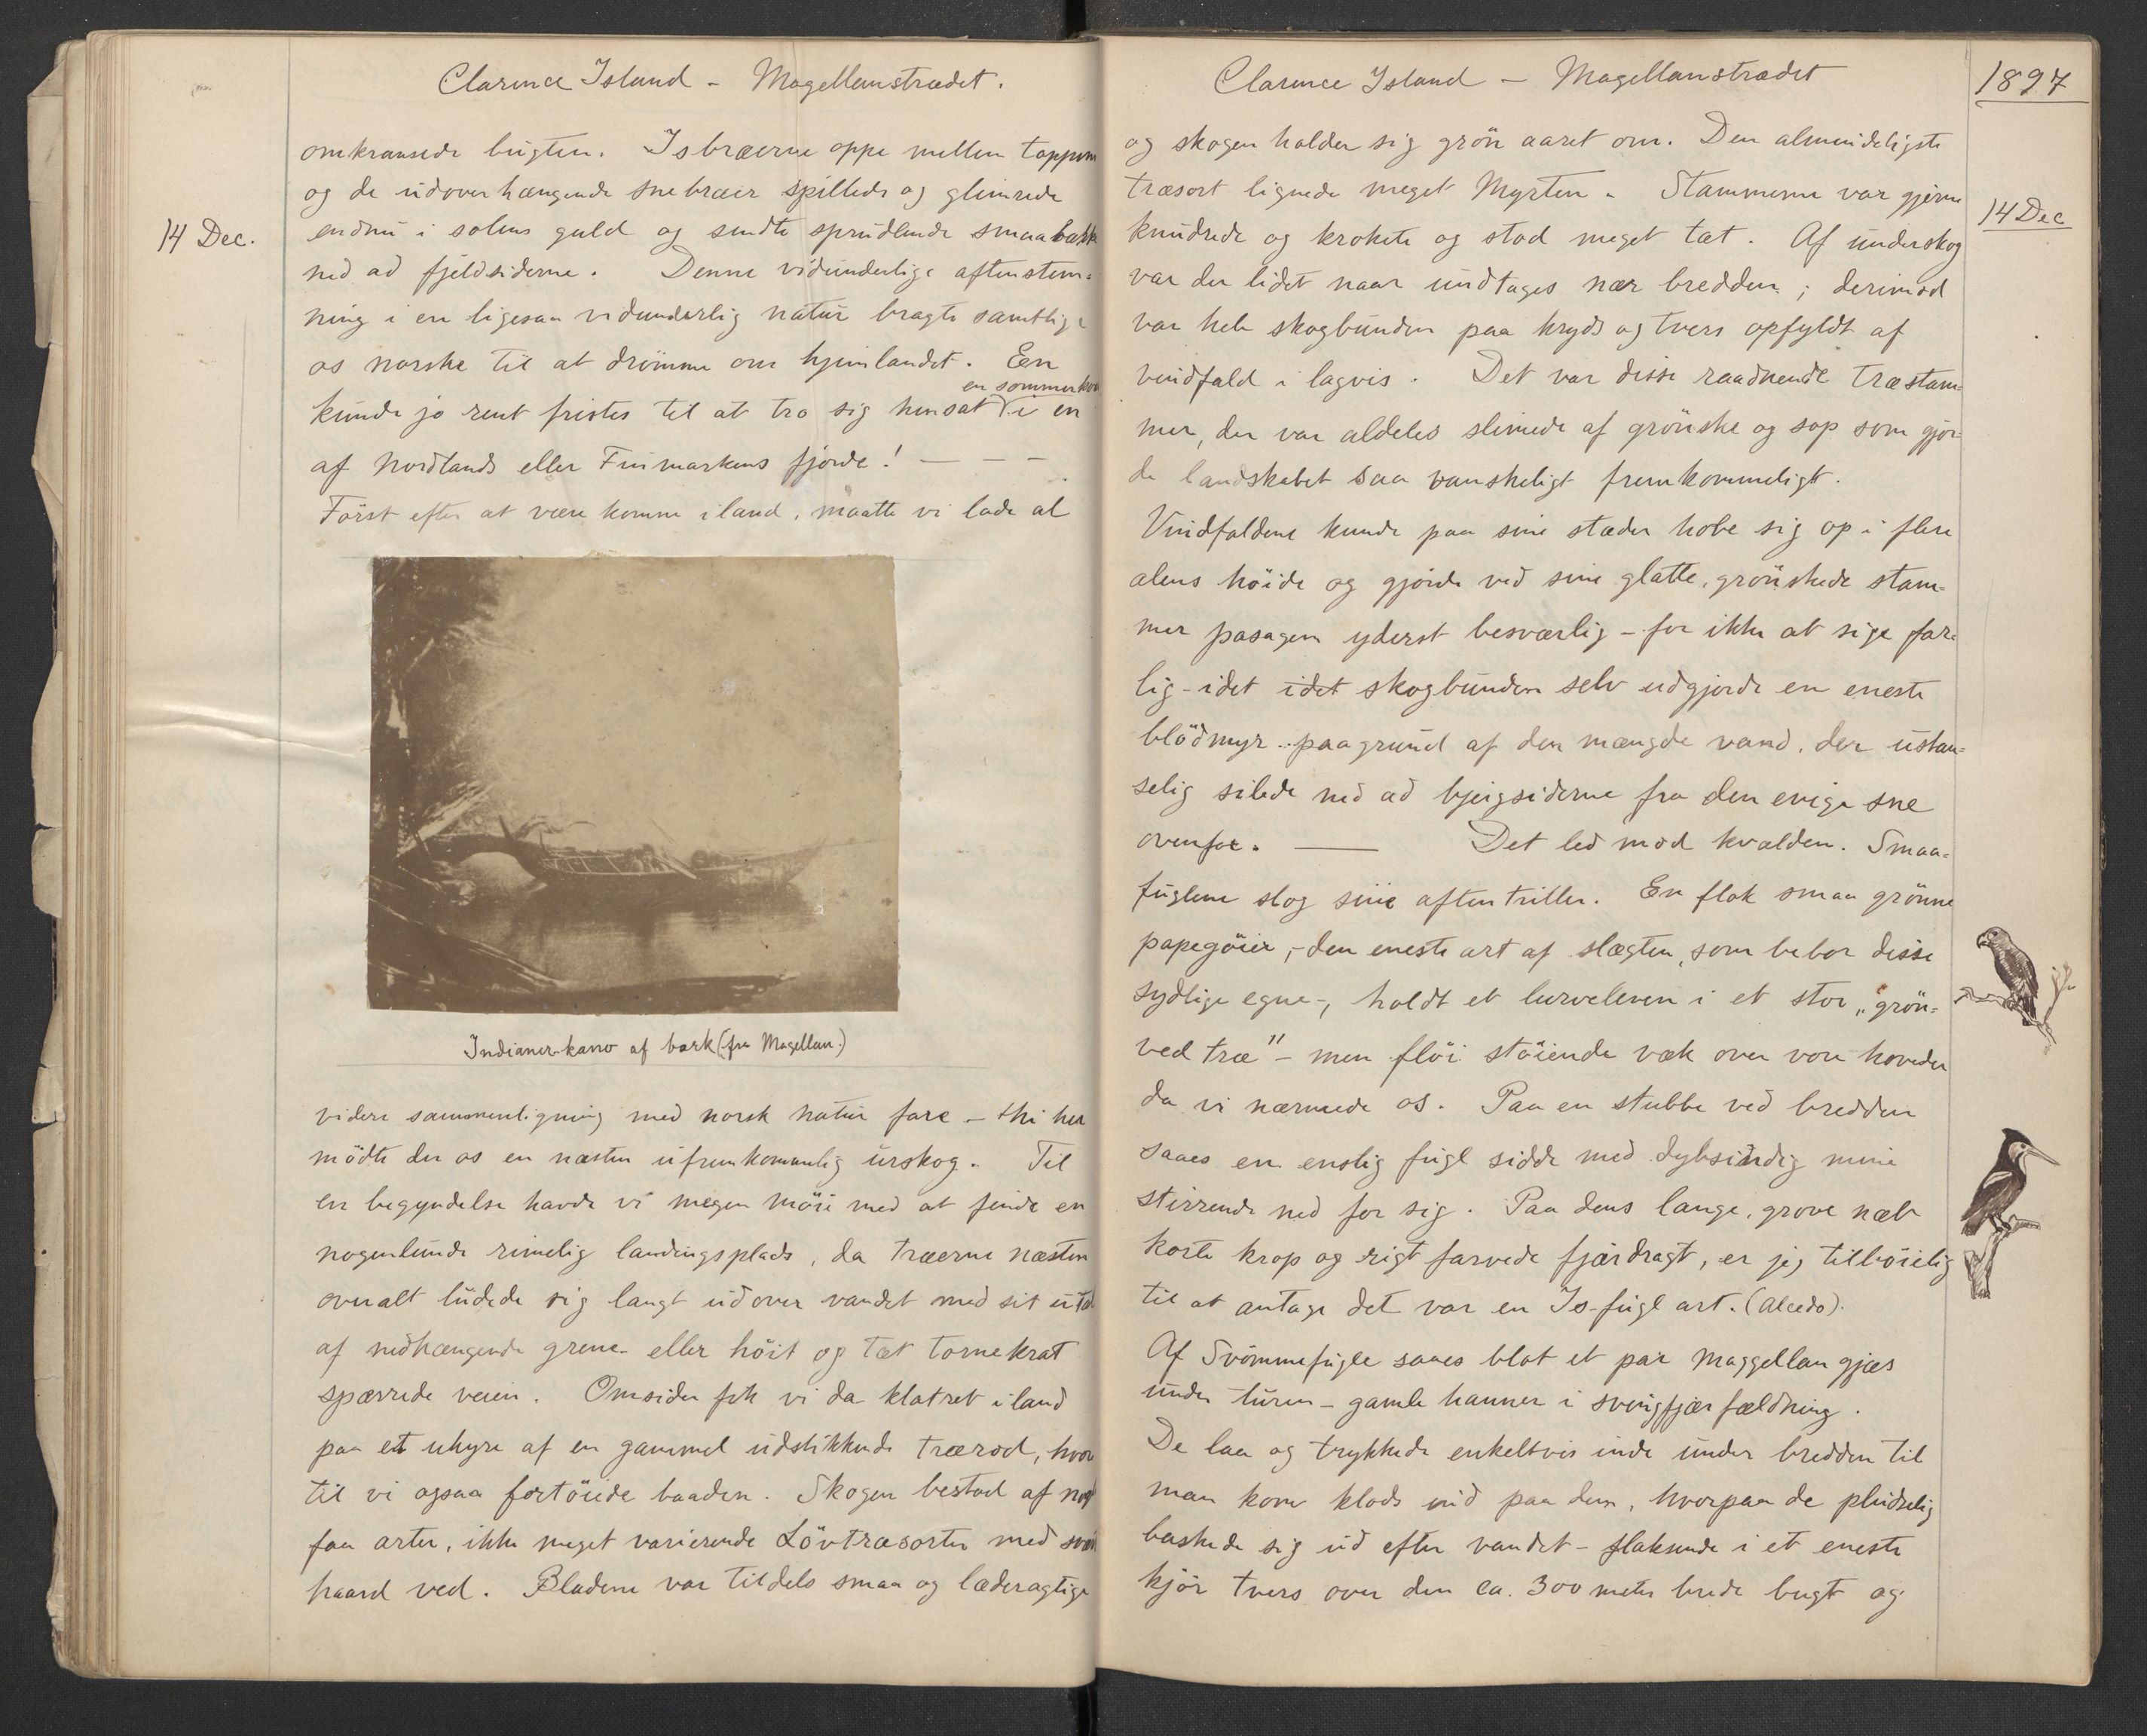 Clarence Island - Magellanstrædet.
14 Dec.
omkransede bugten. Isbræerne oppe mellem toppene
og de udoverhængende snebræer spillede og glimrede
endnu i solens guld og sendte sprudlende smaabække
ned ad fjeldsiderne. Denne vidunderlige aftenstem=
ning i en ligesaa vidunderlig natur bragte samtlige
os norske til at drömme om hjemlandet. En
en sommerkveld
kunde jo rent fristes til at tro sig hensat i en
af Nordlands eller Finmarkens fjorde! — — —
Först efter at være komne iland, maatte vi lade al
Indianer-kano af bark (fra Magellan.)
videre sammenligning med norsk natur fare - thi her
mödte der os en næsten ufremkommelig urskog. Til
en begyndelse havde vi megen möie med at finde en
nogenlunde rimelig landingsplads, da træerne næsten
overalt ludede sig langt udover vandet med sit utal
af nedhængende grene- eller höit og tæt tornekrat
spærrede veien. Omsider fik vi da klatret iland
paa et uhyre af en gammel udstikkende trærod, hvor
til vi ogsaa fortöiede baaden. Skogen bestod af nogle
faa arter, ikke meget varierende Lövtræsorter med svært
haard ved. Bladene var tildels smaa og læderagtige
Clarence Island - Magellanstrædet
1897
14 Dec
og skogen holder sig grön aaret om. Den almindeligste
træsort lignede meget Myrten. Stammerne var gjerne
knudrede og krokete og stod meget tæt. Af underskog
var der lidet naar undtages nær bredden; derimod
var hele skogbunden paa kryds og tvers opfyldt af
vindfald i lagvis. Det var disse raadnende træstam=
mer, der var aldeles slimede af grönske og sop som gjor=
de landskabet saa vanskeligt fremkommeligt.
Vindfaldene kunde paa sine stæder hobe sig op i flere
alens höide og gjorde ved sine glatte, grönskede stam=
mer pasagen yderst besværlig - for ikke at sige far=
lig - idet idet skogbunden selv udgjorde en eneste
blödmyr paagrund af den mængde vand, der ustan=
selig silede ned ad bjergsiderne fra den evige sne
ovenfor. — Det led mod kvælden. Smaa=
fuglene slog sine aftentriller. En flok smaa grönne
papegöier, - den eneste art af slægten, som bebor disse
sydlige egne -, holdt et lurveleven i et stor „grön=
ved træ" - men flöi stöiende væk over vore hoveder
da vi nærmede os. Paa en stubbe ved bredden
saaes en enslig fugl sidde med dybsindig mine
stirrende ned for sig. Paa dens lange, grove næb
korte krop og rigt farvede fjærdragt, er jeg tilböielig
til at antage det var en Is-fugl art. (Alcedo).
Af Svömmefugle saaes blot et par Maggellan gjæs
under turen - gamle hanner i svingfjærfældning.
De laa og trykkede enkeltvis inde under bredden til
man kom klods ind paa dem, hvorpaa de pludselig
baskede sig ud efter vandet - flaksende i et eneste
kjör tvers over den ca. 300 meter brede bugt og